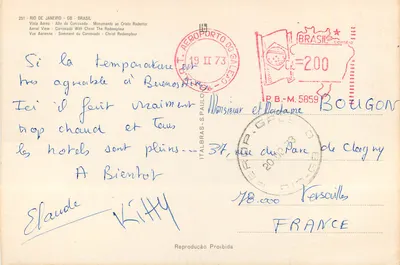 251 - RIO DE JANEIRO - GB - BRASIL
Vista Aérea - Alto do Corcovado - Monumento ao Cristo Redentor
Aerial View - Corcovado With Christ The Redemptor
Vue Aérienne - Sommet du Corcovado - Christ Redempteur
Si la température est
très agréable à Buenos Aires
Ici il fait vraiment
trop chaud et tous
les hotels sont pleins...
A Bientot
Claude Kitty
AEROPORTO DO GALEÃO
19 II 73
BRASIL
=200
P.B.-M. 5859
Monsieur et Madame BOUGON
34, rue du Parc de Clagny
78000 Versailles
FRANCE
ITALBRAS - S. PAULO
Reprodução Proibida